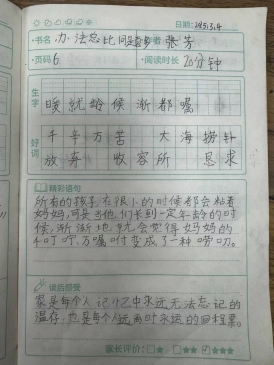 日期: 2025.3.4
·书名 办法总比问题多 作者 张芳
·页码 6 ·阅读时长 20分钟
生字
暖 就 始 候 渐 都 嘱
好词
千辛万苦 大海捞针
放弃 收容所 恳求
精彩语句
所有的孩子在很小的时候都会粘着
妈妈,可是当他们长到一定年龄的时
候,渐渐地就会觉得妈妈的
千叮咛,万嘱咐变成了一种唠叨。
读后感受
家是每个人记忆中永远无法忘记的
温存,也是每个人远离时永恒的回程票。
家长评价: □★ □★★ □★★★